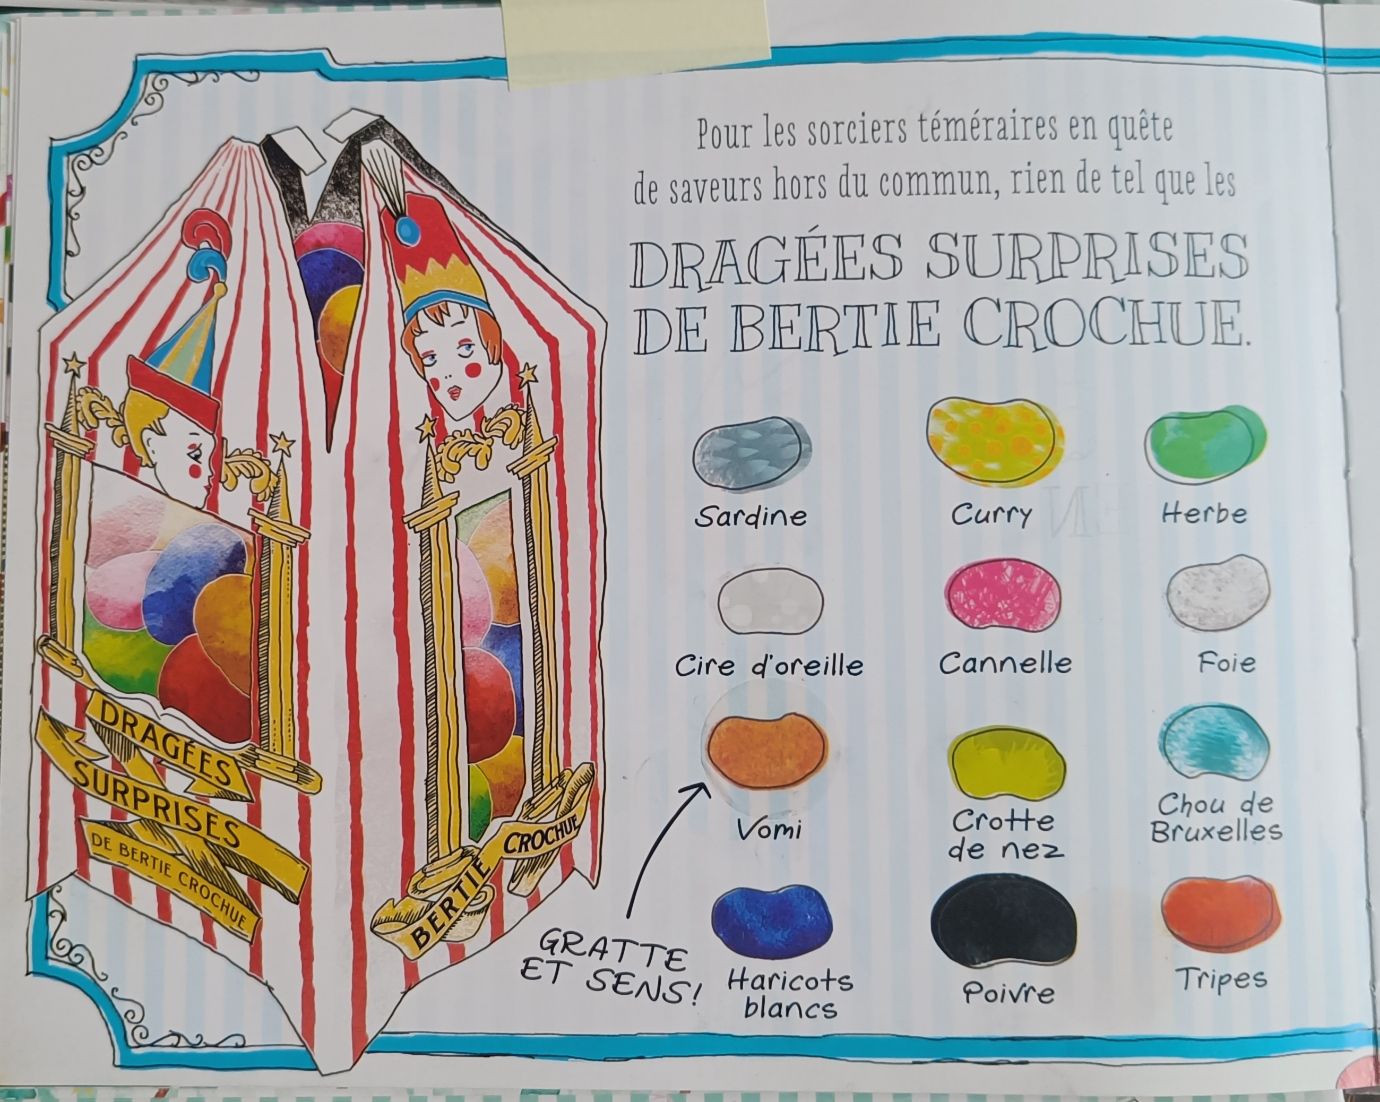 Pour les sorciers téméraires en quête
de saveurs hors du commun, rien de tel que les
DRAGÉES SURPRISES
DE BERTIE CROCHUE.
Sardine
Curry
Herbe
Cire d'oreille
Cannelle
Foie
Vomi
Crotte
de nez
Chou de
Bruxelles
GRATTE
ET SENS!
Haricots
blancs
Poivre
Tripes
DRAGÉES
SURPRISES
DE BERTIE CROCHUE
BERTIE
CROCHUE